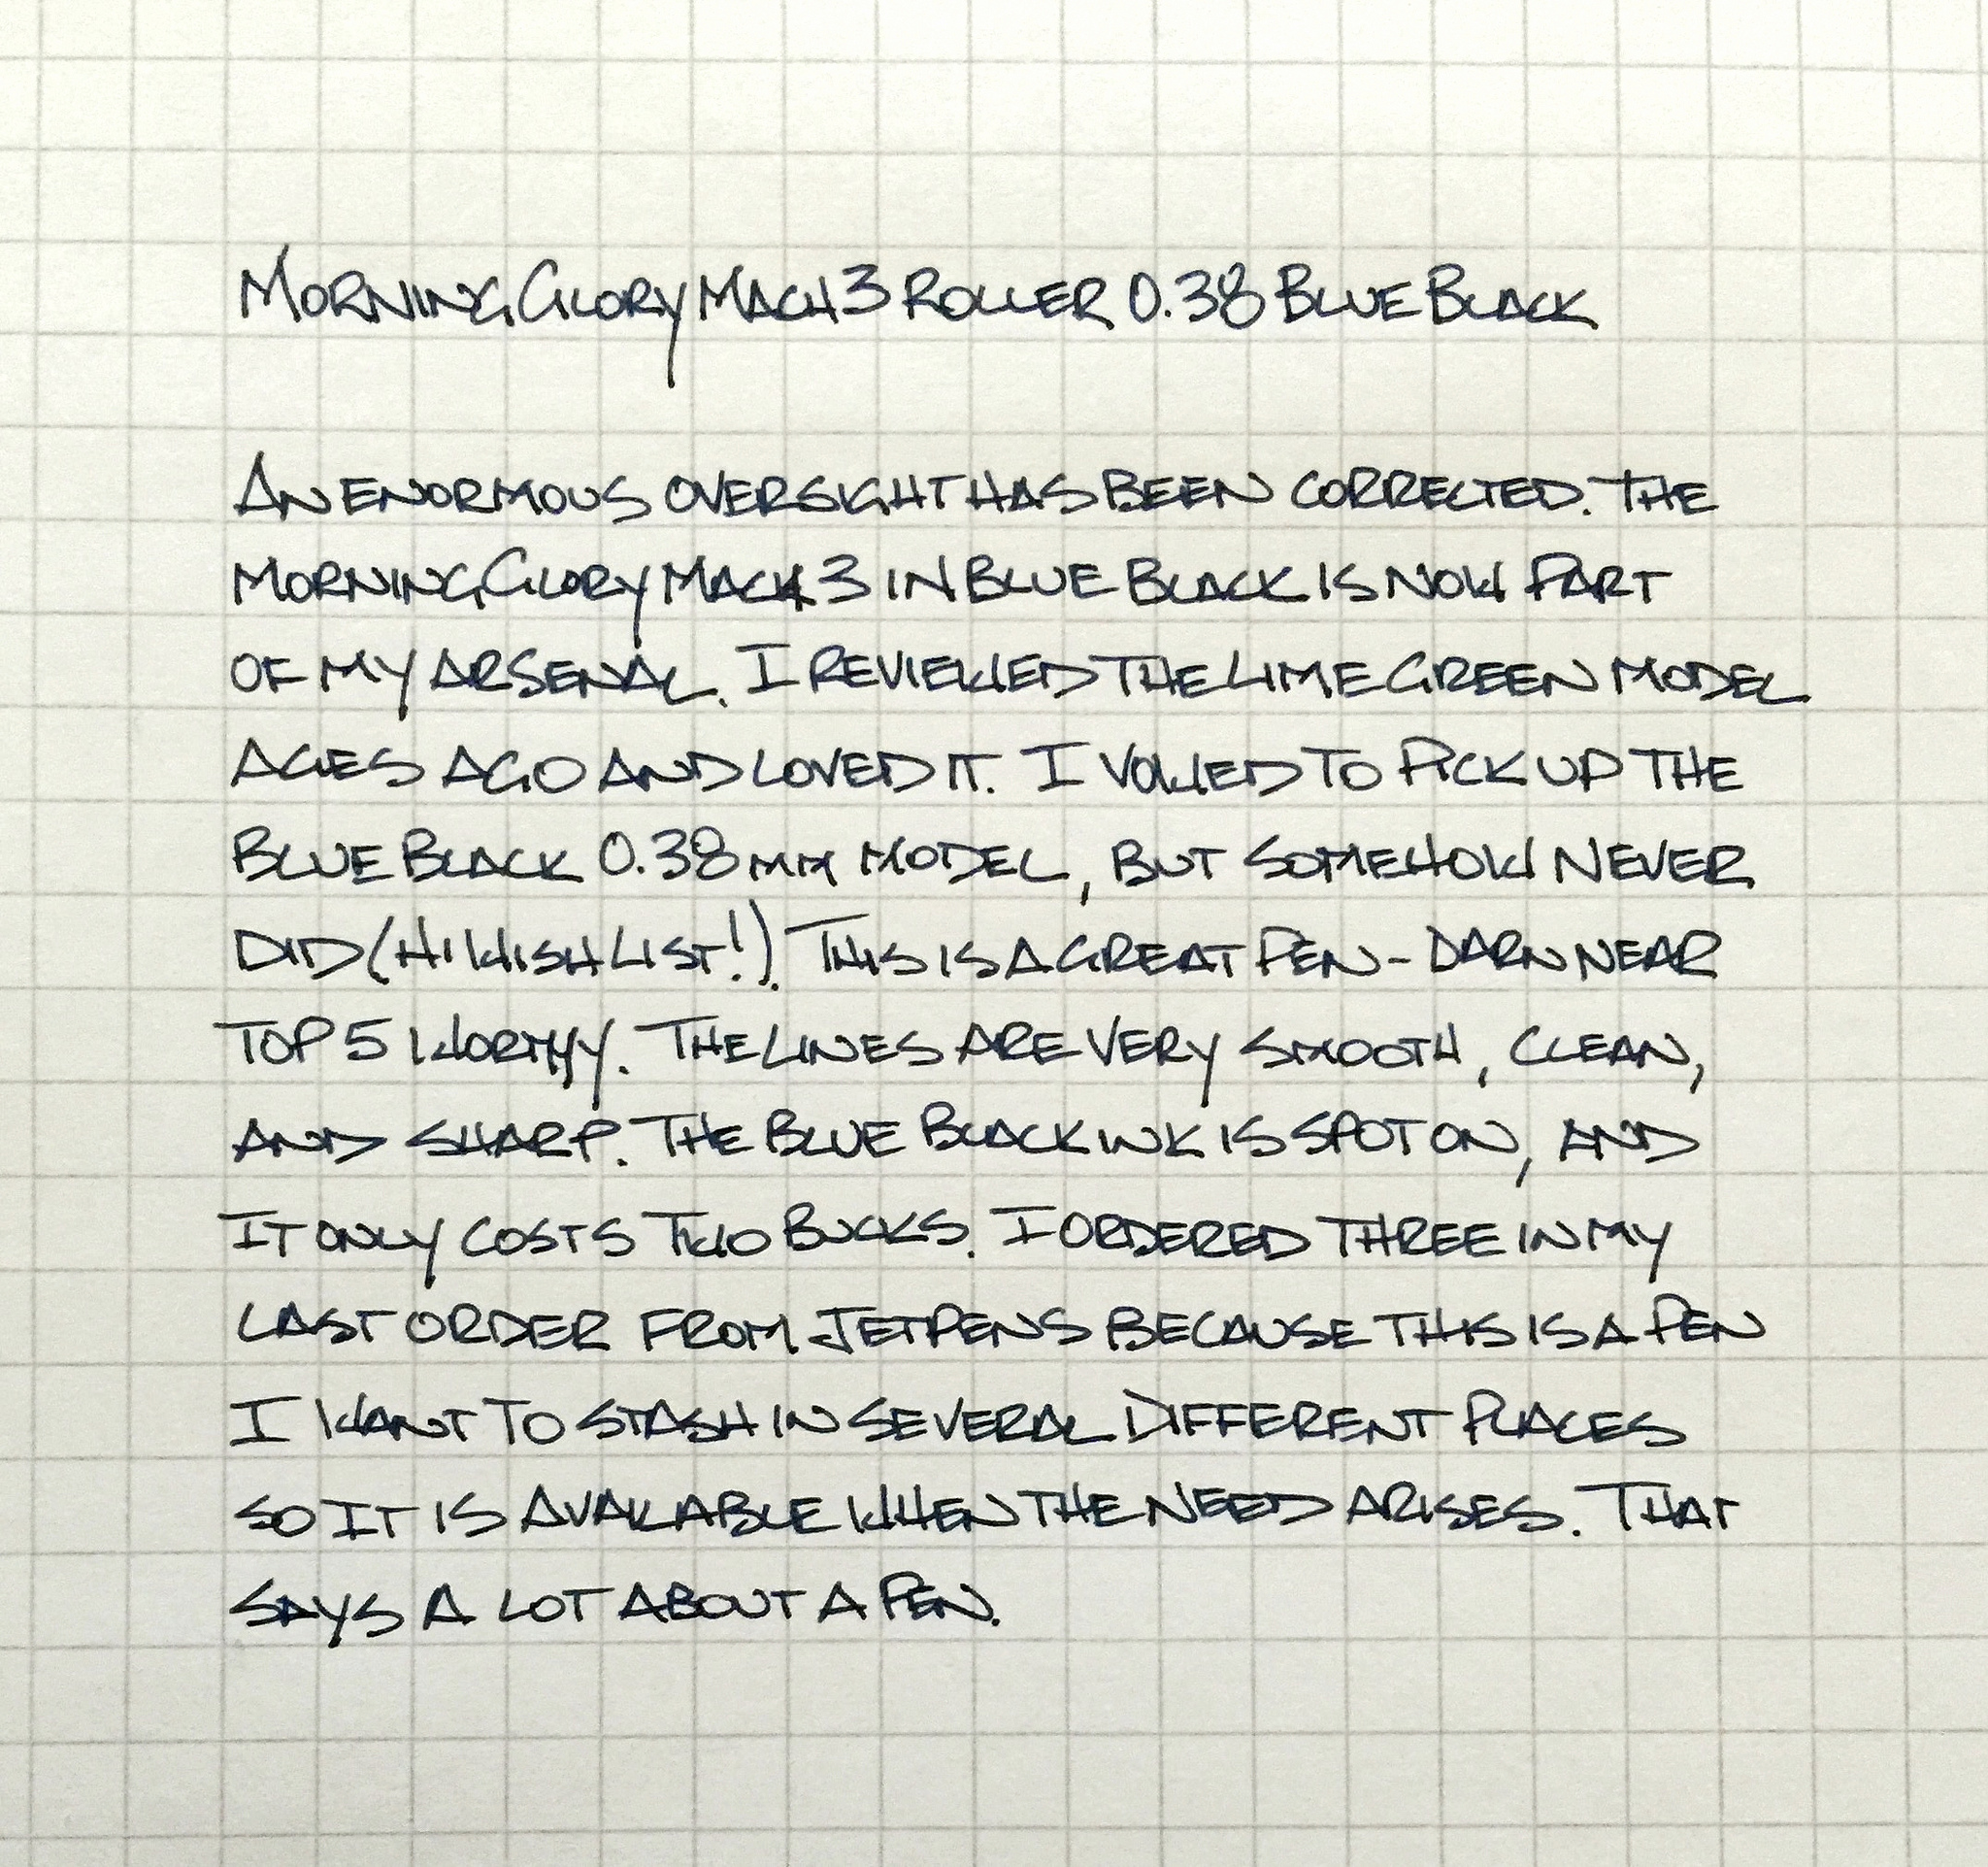 MORNING GLORY MACH 3 ROLLER 0.38 BLUE BLACK
AN ENORMOUS OVERSIGHT HAS BEEN CORRECTED. THE
MORNING GLORY MACH 3 IN BLUE BLACK IS NOW PART
OF MY ARSENAL. I REVIEWED THE LIME GREEN MODEL
AGES AGO AND LOVED IT. I VOWED TO PICK UP THE
BLUE BLACK 0.38 MM MODEL, BUT SOMEHOW NEVER
DID (HI WISH LIST!). THIS IS A GREAT PEN - DARN NEAR
TOP 5 WORTHY. THE LINES ARE VERY SMOOTH, CLEAN,
AND SHARP. THE BLUE BLACK INK IS SPOT ON, AND
IT ONLY COSTS TWO BUCKS. I ORDERED THREE IN MY
LAST ORDER FROM JETPENS BECAUSE THIS IS A PEN
I WANT TO STASH IN SEVERAL DIFFERENT PLACES
SO IT IS AVAILABLE WHEN THE NEED ARISES. THAT
SAYS A LOT ABOUT A PEN.